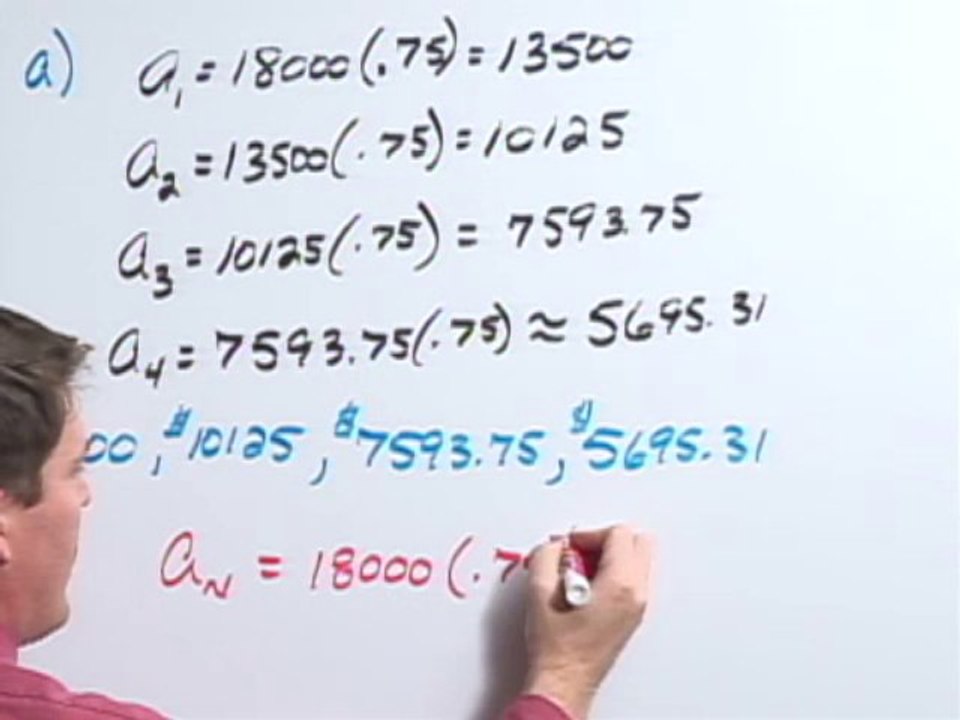 a) a₁ = 18000(.75) = 13500
a₂ = 13500(.75) = 10125
a₃ = 10125(.75) = 7593.75
a₄ = 7593.75(.75) ≈ 5695.31
00, $10125, $7593.75, $5695.31
a_N = 18000(.7